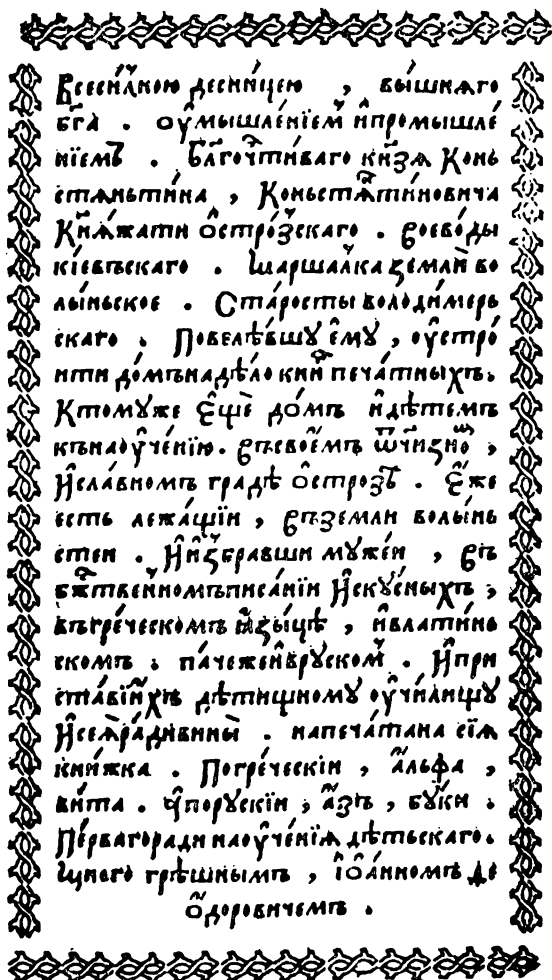 Всеси́лною десни́цею , вы́шнѧго
бг҃а̀ . ᲂу҆мышле́нїемҸ и҆промышле́
нїемъ . Бл҃гоч҇ти́ваго кн҃зѧ Конь
стѧньти́на , Коньстѧ҇ти́новича
Кнѧ́жати ѻ҆стро́зскаго . воево́ды
кі́евъскаго . Маршалка земли̂ во
лы́ньское . Ста́росты володи́мерь
скаго . Повелѣ́вшу є҆му̀ , ᲂу҆стро́
ити до́мъ надѣ́ло кни҃г печа́тныхъ .
Ктомꙋже є҆щѐ до́мъ и҆дѣ́темъ
кънаᲂу҆че́нїю . въсвое́мъ ѿчи́зно҇м ,
и҆сла́вномъ градѣ ѻ҆стро́зѣ . є҆́же
есть лежа́щїи , въземли волы́нь
стеи . И҆и҆збра́вши мꙋже́и , въ
бж҃твенномъписа́нїи и҆скꙋсныхъ ,
въгре́ческомъ ꙗ҆зы́цѣ , и҆влати́нь
скомъ . па́чежеи҆врꙋском . И҆при
ста́вїихъ дѣ́тищномꙋ ᲂу҆чи́лищꙋ
И҆сеѧ̀ра́дивины̀ . напеча́тана сїѧ
кни́жка . Погре́ческїи , а҆́льфа ,
ви́та . а҆порꙋскїи , а҆́зъ , бꙋ́ки .
Пе́рвагоради наᲂу҆че́нїѧ дѣ́тьскаго .
многогрѣ́шнымъ , і҆ѡа́нномъ Ѳе
ѻ҆доровичемъ .